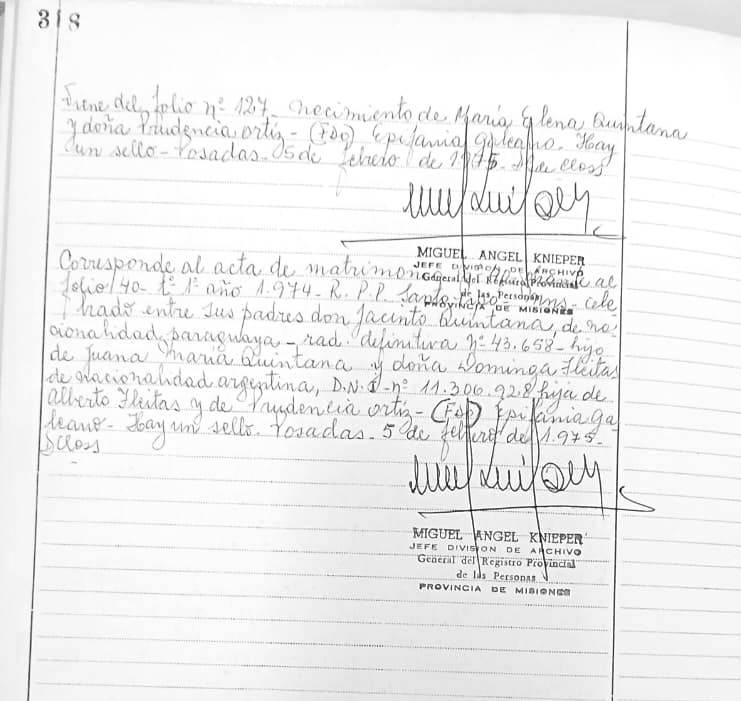 318
Viene del folio nº 127- necimiento de María Elena Quintana
y doña Prudencia Ortiz- (Fdo) Epifania Galeano. Hay
un sello- Posadas- 05 de febrero de 1975- DCloss
MIGUEL ANGEL KNIEPER
JEFE DIVISION DE ARCHIVO
General del Registro Provincial
de las Personas
PROVINCIA DE MISIONES
Corresponde al acta de matrimonio al
folio 40- tº 1º año 1.974- R. P. P. cele
brado entre sus padres don Jacinto Quintana, de na
cionalidad paraguaya- rad. definitiva nº 43.658- hijo
de Juana María Quintana y doña Dominga Fleitas
de nacionalidad argentina, D.N.I- nº 11.306.928 hija de
Alberto Fleitas y de Prudencia Ortiz- (Fdo) Epifania Ga
leano- Hay un sello. Posadas- 5 de febrero de 1.975-
DCloss
MIGUEL ANGEL KNIEPER
JEFE DIVISION DE ARCHIVO
General del Registro Provincial
de las Personas
PROVINCIA DE MISIONES